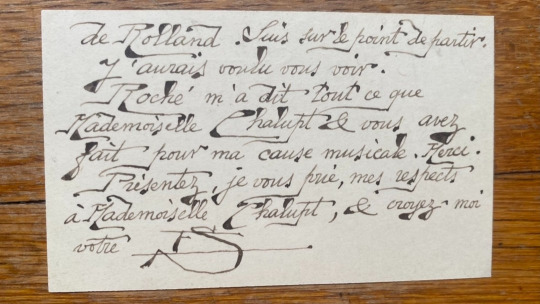 de Rolland. Suis sur le point de partir.
J'aurais voulu vous voir.
Roché m'a dit tout ce que
Mademoiselle Chalupt & vous avez
fait pour ma cause musicale. Merci.
Présentez, je vous prie, mes respects
à Mademoiselle Chalupt, & croyez moi
votre ES